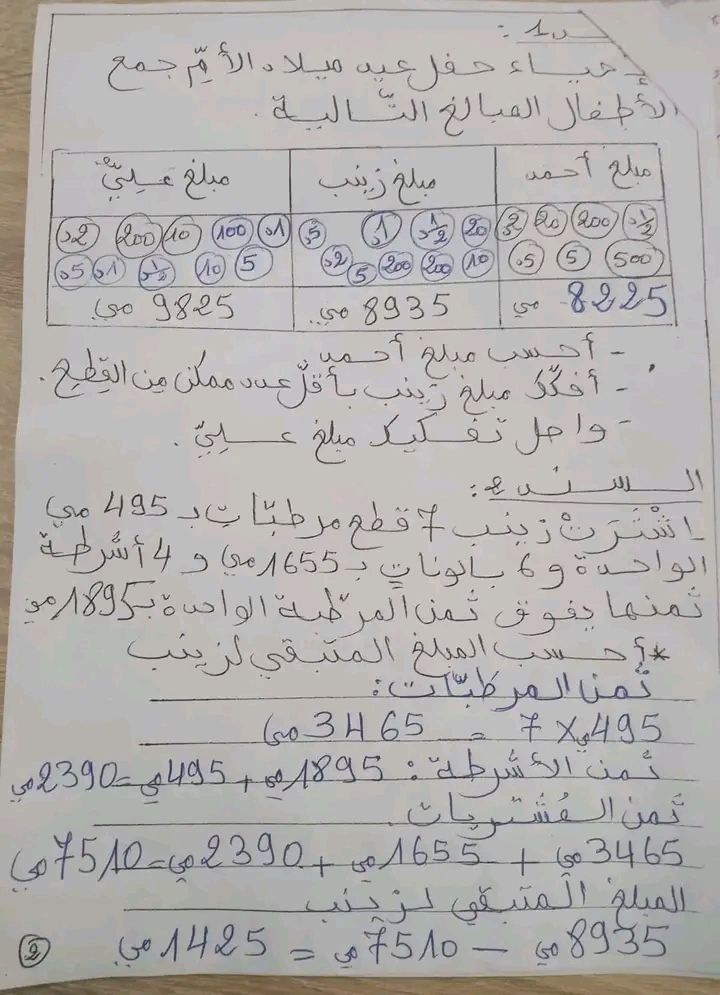 سند 1:
لإحياء حفل عيد ميلاد الأمّ جمع
الأطفال المبالغ التّالية.
مبلغ أحمد | مبلغ زينب | مبلغ عليّ
20 200 د1/2 | د5 د1 د1/2 20 | د2 200 10 100 د1
د5 5 500 | د2 5 200 200 10 | د5 د1 د1/2 10 5
8225 مي | 8935 مي | 9825 مي
- أحسب مبلغ أحمد.
- أفكّك مبلغ زينب بأقلّ عدد ممكن من القطع.
- واصل تفكيك مبلغ عليّ.
السند 2:
اشْتَرَتْ زينب 7 قطع مرطّبات بـ 495 مي
الواحدة و 6 بالونات بـ 1655 مي و 4 أشرطة
ثمنها يفوق ثمن المرطّبة الواحدة بـ 1895 مي
* أحسب المبلغ المتبقي لزينب
ثمن المرطّبات:
495 مي × 7 = 3465 مي
ثمن الأشرطة: 1895 مي + 495 مي = 2390 مي
ثمن المُشتريات
3465 مي + 1655 مي + 2390 مي = 7510 مي
المبلغ المتبقي لزينب
8935 مي - 7510 مي = 1425 مي
2